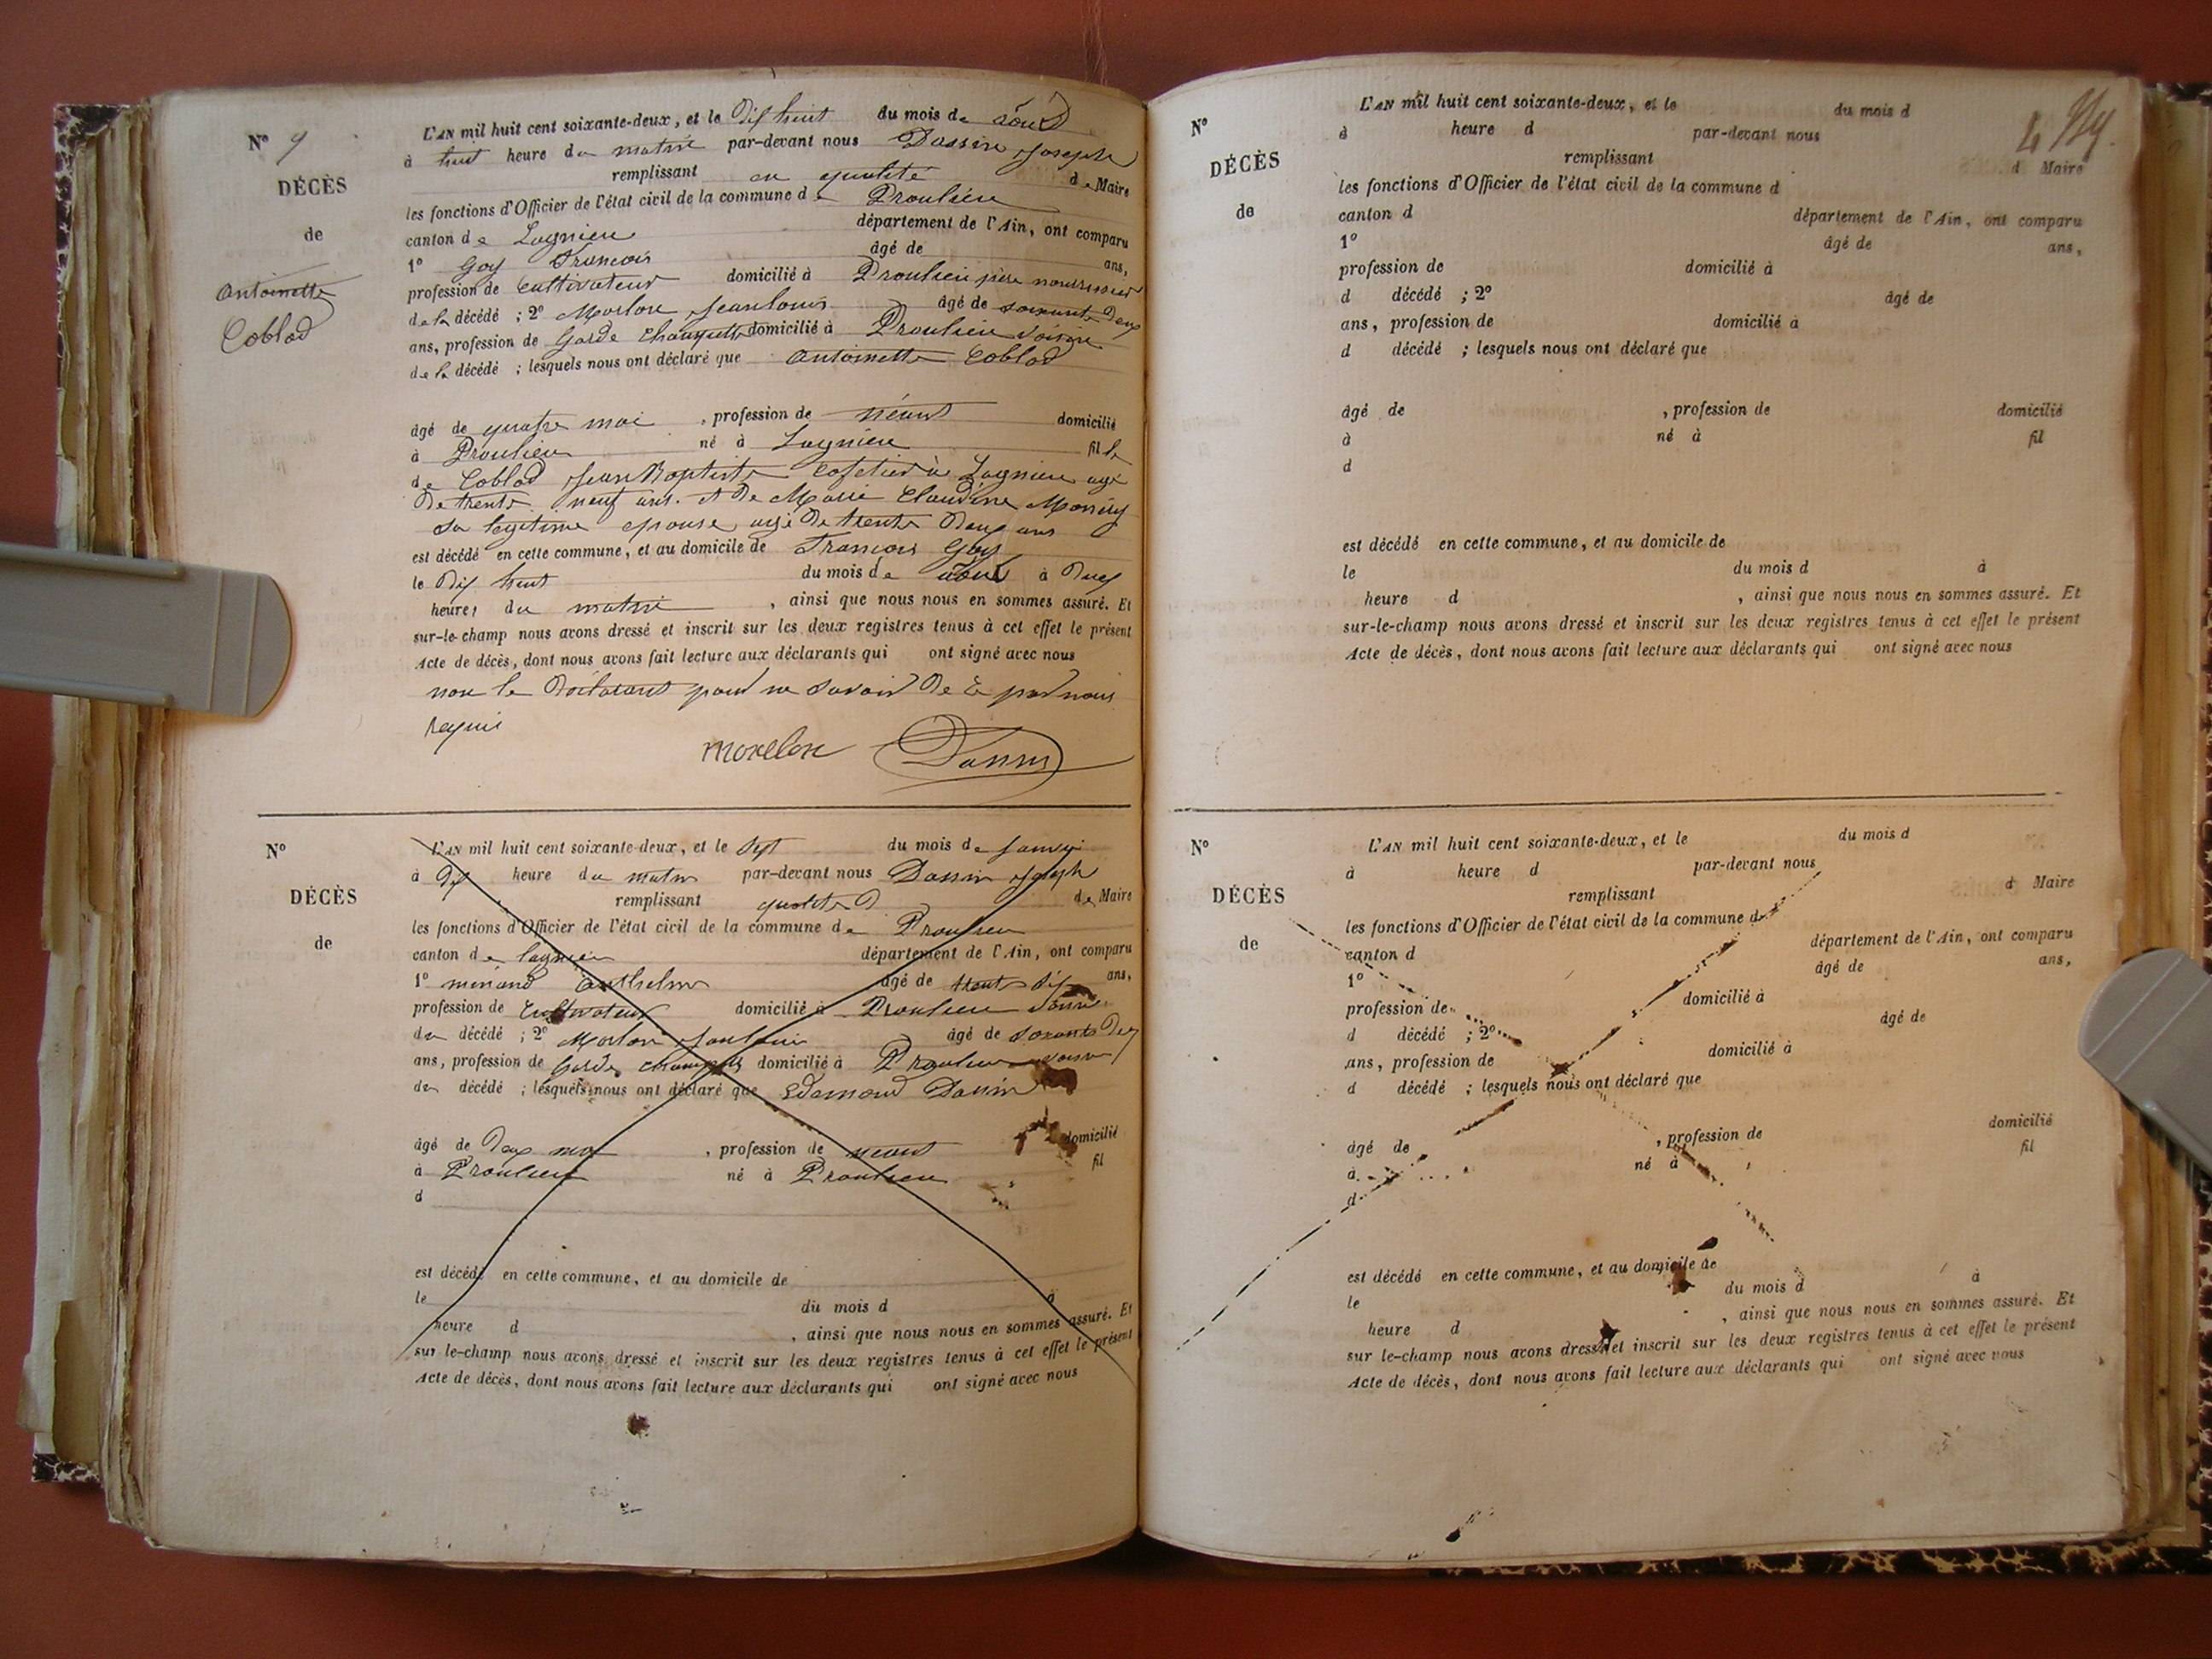 N° 9
DÉCÈS
de
Antoinette
Coblod
L'AN mil huit cent soixante-deux, et le Dix huit du mois de août
à huit heure du matin par-devant nous Dassin Joseph
remplissant en qualité de Maire
les fonctions d'Officier de l'état civil de la commune de Proulieu
canton de Lagnieu département de l'Ain, ont comparu
1° Goy Francois âgé de ans,
profession de Cultivateur domicilié à Proulieu père nourricier
de la décédé ; 2° Morlon Jean louis âgé de soixante Deux
ans, profession de Garde Champette domicilié à Proulieu voisin
de la décédé ; lesquels nous ont déclaré que Antoinette Coblod
âgé de quatre moi , profession de néant domicilié
à Proulieu né à Lagnieu fil le
de Coblod Jean Baptiste Cafetier à Lagnieu agé
De trente neuf ans. et De Marie Claudine
sa legitime epouse agé De trente Deux ans
est décédé en cette commune, et au domicile de Francois Goy
le Dix huit du mois de août à Deux
heures du matin , ainsi que nous nous en sommes assuré. Et
sur-le-champ nous avons dressé et inscrit sur les deux registres tenus à cet effet le présent
Acte de décès, dont nous avons fait lecture aux déclarants qui ont signé avec nous
non le Déclarant pour ne savoir De ce par nous
requis
morelon Dassin
N°
DÉCÈS
de
L'AN mil huit cent soixante-deux, et le Sept du mois de Janvi
à Dix heure du matin par-devant nous Dassin Joseph
remplissant qualité D de Maire
les fonctions d'Officier de l'état civil de la commune de Proulieu
canton de lagnieu département de l'Ain, ont comparu
1° minand Anthelme âgé de trente Dix ans,
profession de Cultivateur domicilié à Proulieu
du décédé ; 2° Morlon Jean louis âgé de soixante Deux
ans, profession de Garde champette domicilié à Proulieu voisin
du décédé ; lesquels nous ont déclaré que Edemond Dassin
âgé de Deux moi , profession de néant domicilié
à Proulieu né à Proulieu fil
d
est décédé en cette commune, et au domicile de
le du mois d à
heure d , ainsi que nous nous en sommes assuré. Et
sur le-champ nous avons dressé et inscrit sur les deux registres tenus à cet effet le présent
Acte de décès, dont nous avons fait lecture aux déclarants qui ont signé avec nous
N°
DÉCÈS
de
L'AN mil huit cent soixante-deux, et le du mois d
à heure d par-devant nous
remplissant d Maire
les fonctions d'Officier de l'état civil de la commune d
canton d département de l'Ain, ont comparu
1° âgé de ans,
profession de domicilié à
d décédé ; 2° âgé de
ans, profession de domicilié à
d décédé ; lesquels nous ont déclaré que
âgé de , profession de domicilié
à né à fil
d
est décédé en cette commune, et au domicile de
le du mois d à
heure d , ainsi que nous nous en sommes assuré. Et
sur-le-champ nous avons dressé et inscrit sur les deux registres tenus à cet effet le présent
Acte de décès, dont nous avons fait lecture aux déclarants qui ont signé avec nous
N°
DÉCÈS
de
L'AN mil huit cent soixante-deux, et le du mois d
à heure d par-devant nous
remplissant d Maire
les fonctions d'Officier de l'état civil de la commune d
canton d département de l'Ain, ont comparu
1° âgé de ans,
profession de domicilié à
d décédé ; 2° âgé de
ans, profession de domicilié à
d décédé ; lesquels nous ont déclaré que
âgé de , profession de domicilié
à né à fil
d
est décédé en cette commune, et au domicile de
le du mois d à
heure d , ainsi que nous nous en sommes assuré. Et
sur le-champ nous avons dressé et inscrit sur les deux registres tenus à cet effet le présent
Acte de décès, dont nous avons fait lecture aux déclarants qui ont signé avec nous